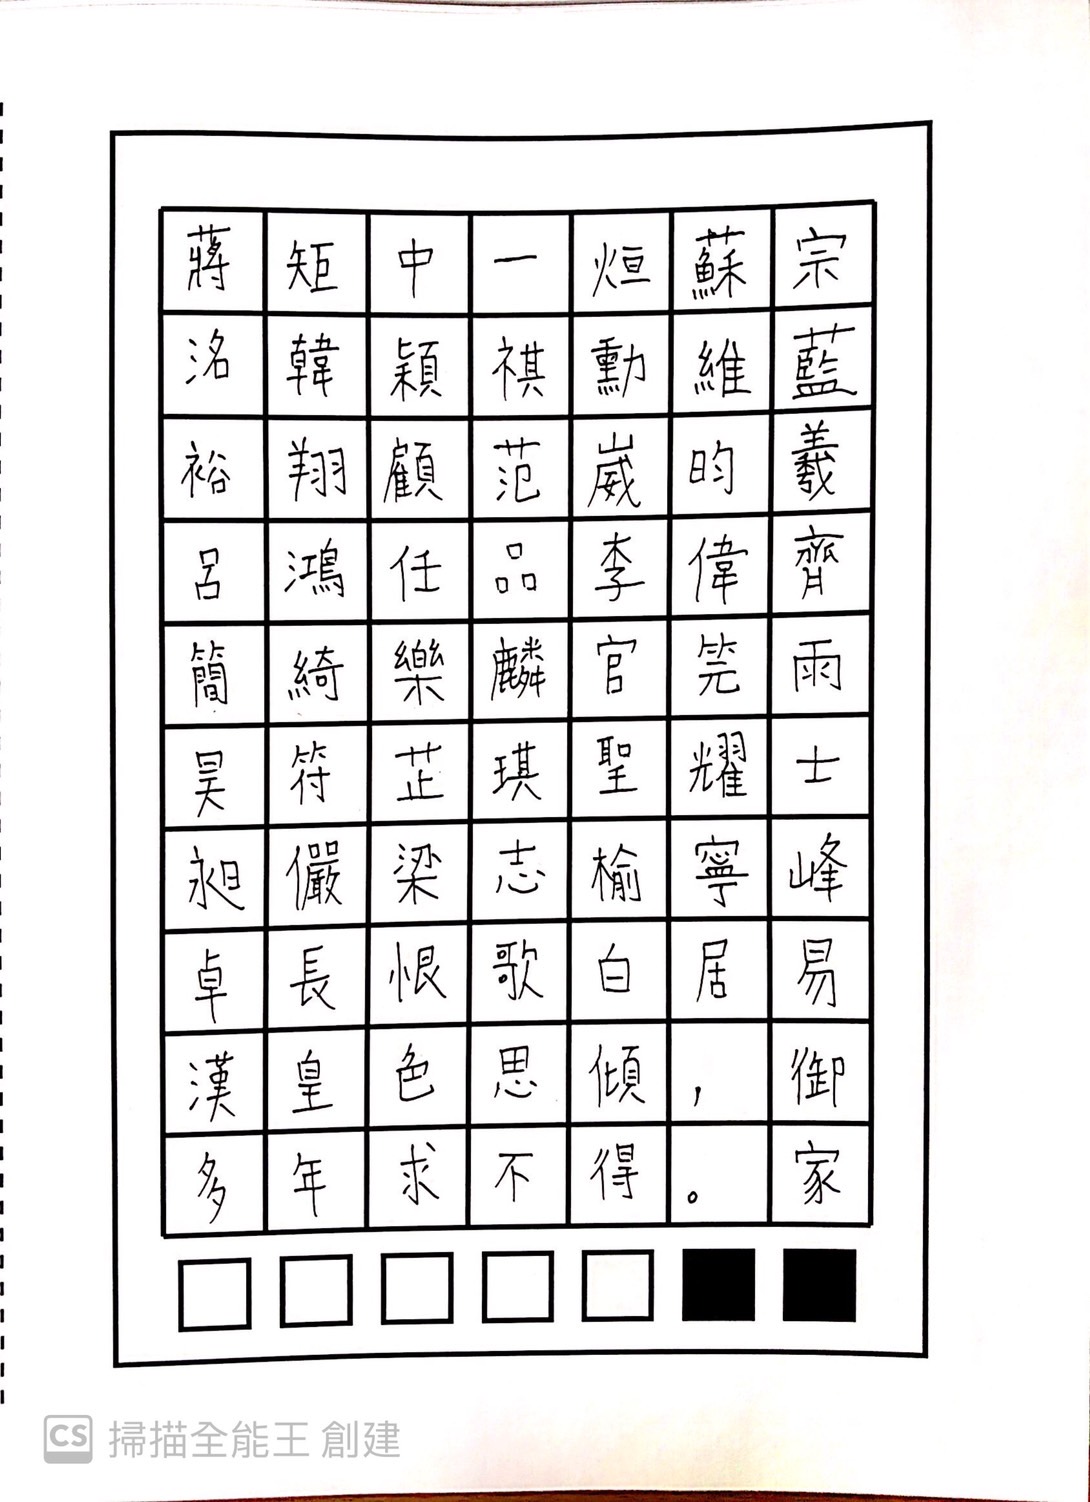 蔣矩中一烜蘇宗
洺韓穎祺勳維藍
裕翔顧范崴昀羲
呂鴻任品李偉齊
簡綺樂麟官筦雨
昊符芷琪聖耀士
昶儼梁志榆寧峰
卓長恨歌白居易
漢皇色思傾，御
多年求不得。家
CS 掃描全能王 創建